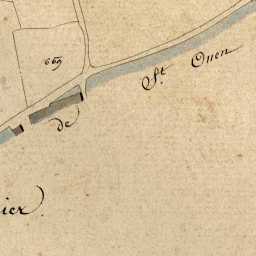 669
St. Ouen
de
ier